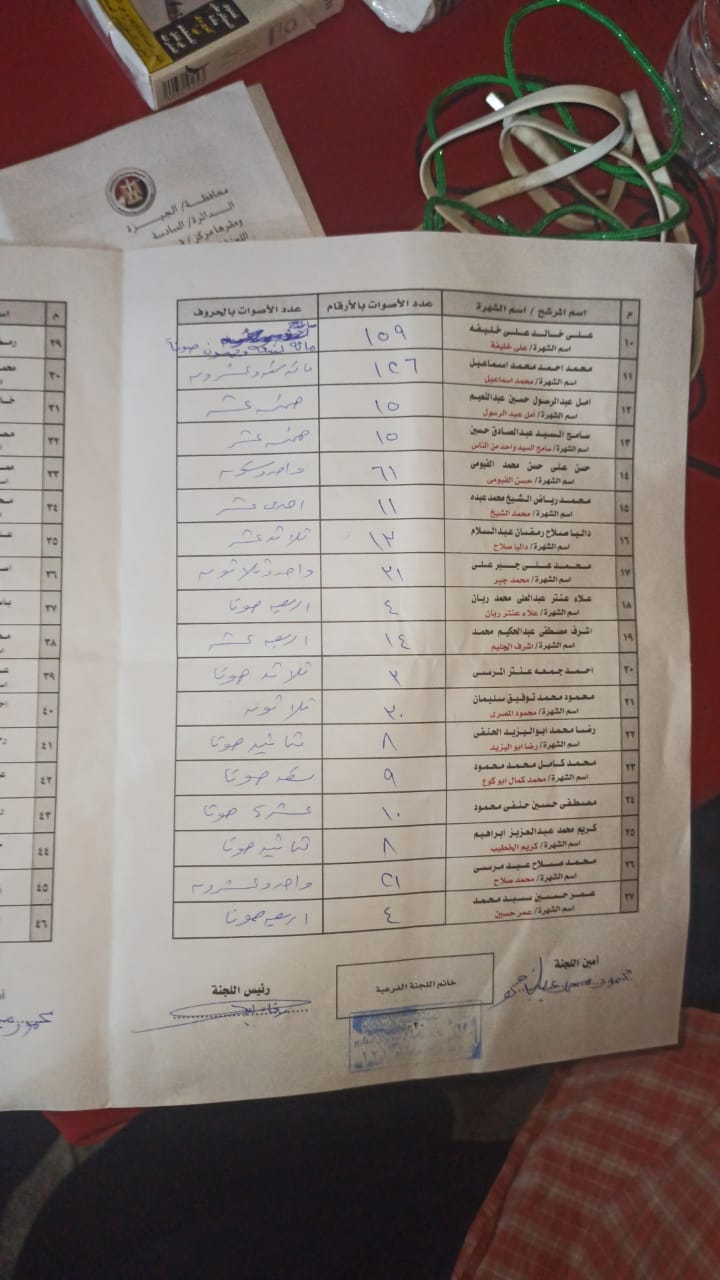 محافظة/ الجيزة
الدائرة/ السادسة
ومقرها مركز/
م اسم المرشح / اسم الشهرة عدد الأصوات بالأرقام عدد الأصوات بالحروف
١٠ على خالد على خليفه ١٥٩ مائة تسعة وخمسون صوتا
اسم الشهرة/ على خليفة
١١ محمد احمد محمد اسماعيل ١٢٦ مائة ستة وعشرون
اسم الشهرة/ محمد اسماعيل
١٢ امل عبدالرسول حسين عبدالنعيم ١٥ خمسة عشر
اسم الشهرة/ أمل عبد الرسول
١٣ سامح السيد عبدالصادق حسين ١٥ خمسة عشر
اسم الشهرة/ سامح السيد واحد من الناس
١٤ حسن على حسن محمد الفيومى ٦١ واحد وستون
اسم الشهرة/ حسن الفيومى
١٥ محمد رياض الشيخ محمد عبده ١١ احدى عشر
اسم الشهرة/ محمد الشيخ
١٦ داليا صلاح رمضان عبدالسلام ١٣ ثلاثة عشر
اسم الشهرة/ داليا صلاح
١٧ محمد على جبر على ٣١ واحد وثلاثون
اسم الشهرة/ محمد جبر
١٨ علاء عنتر عبدالعلى محمد ريان ٤ اربعة صوتا
اسم الشهرة/ علاء عنتر ريان
١٩ اشرف مصطفى عبدالحكيم محمد ١٤ اربعة عشر
اسم الشهرة/ اشرف الجليم
٢٠ احمد جمعه عنتر المرسى ٣ ثلاثة صوتا
٢١ محمود محمد توفيق سليمان ٣٠ ثلاثون
اسم الشهرة/ محمود المصرى
٢٢ رضا محمد ابواليزيد الحنفى ٨ ثمانية صوتا
اسم الشهرة/ رضا ابو اليزيد
٢٣ محمد كامل محمد محمود ٩ تسعة صوتا
اسم الشهرة/ محمد كمال ابو كوع
٢٤ مصطفى حسين حنفى محمود ١٠ عشرة صوتا
٢٥ كريم محمد عبدالعزيز ابراهيم ٨ ثمانية صوتا
اسم الشهرة/ كريم الخطيب
٢٦ محمد صلاح عبد مرسى ٢١ واحد وعشرون
اسم الشهرة/ محمد صلاح
٢٧ عمر حسين سيد محمد ٤ اربعة صوتا
اسم الشهرة/ عمر حسين
أمين اللجنة خاتم اللجنة الفرعية رئيس اللجنة
-٢٠-
م
٢٩
٣٠
٣١
٣٢
٣٣
٣٤
٣٥
٣٦
٣٧
٣٨
٣٩
٤٠
٤١
٤٢
٤٣
٤٤
٤٥
٤٦